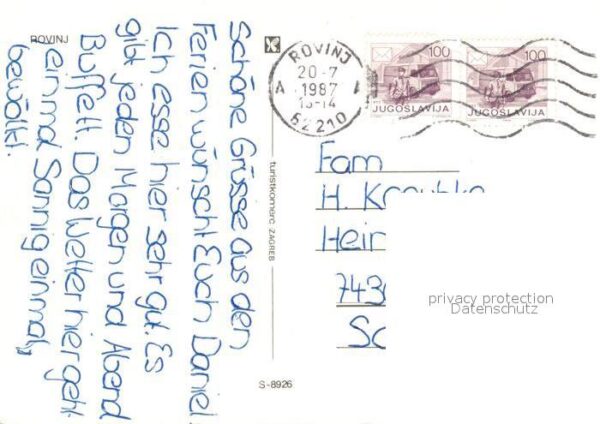 ROVINJ
Schöne Grüsse aus den
Ferien wünscht Euch Daniel
Ich esse hier sehr gut. Es
gibt jeden Morgen und Abend
Büffett. Das Wetter hier geht
einmal Sonnig einmal
bewölkt.
turistkomerc ZAGREB
S-8926
ROVINJ
20-7
1987
13-14
A A
52210
100
JUGOSLAVIJA
100
JUGOSLAVIJA
Fam
H.
Hein
743
Sc
privacy protection
Datenschutz